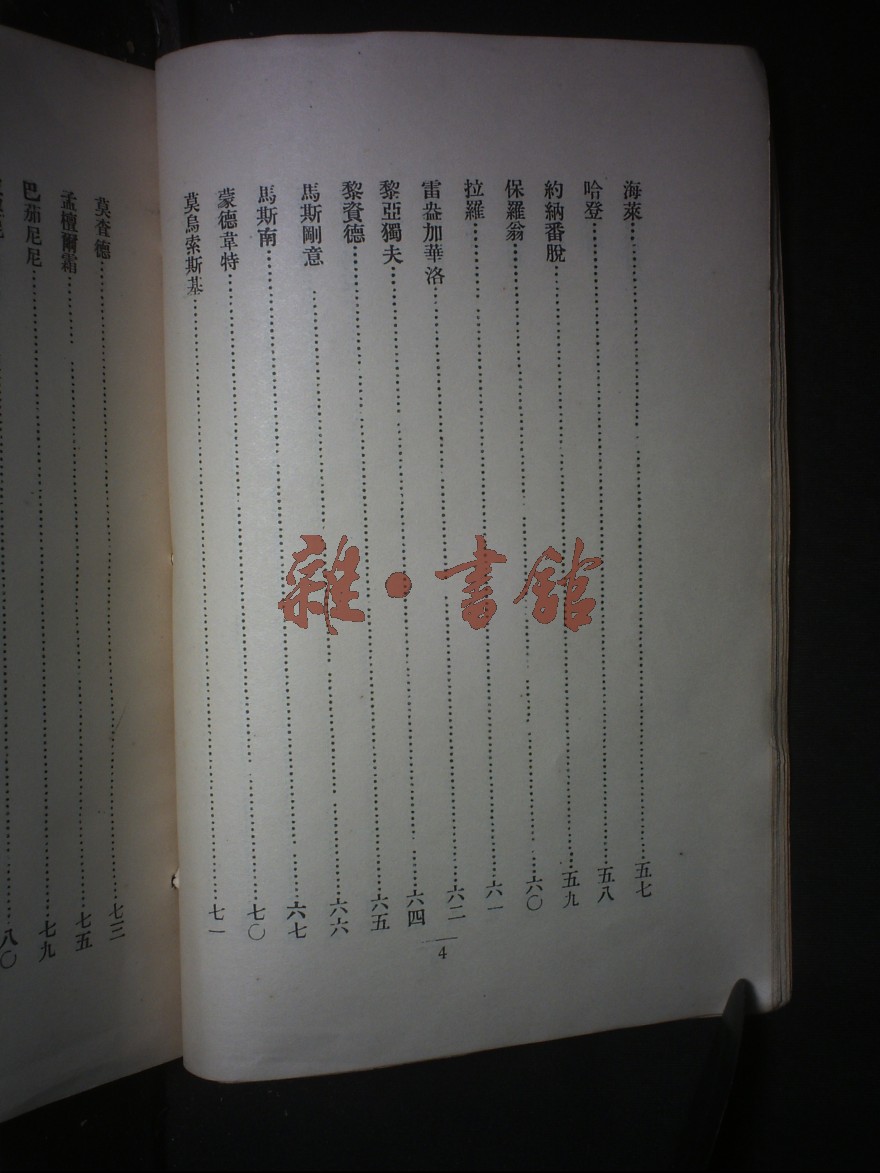 海萊…………五七
哈登…………五八
約納番脫…………五九
保羅翁…………六〇
拉羅…………六一
雷盎加華洛…………六二
黎亞獨夫…………六四
黎資德…………六五
馬斯剛意…………六六
馬斯南…………六七
蒙德韋特…………七〇
莫烏索斯基…………七一
4
莫査德…………七三
孟檀爾霜…………七五
巴茄尼尼…………七九
八〇
雜·書館